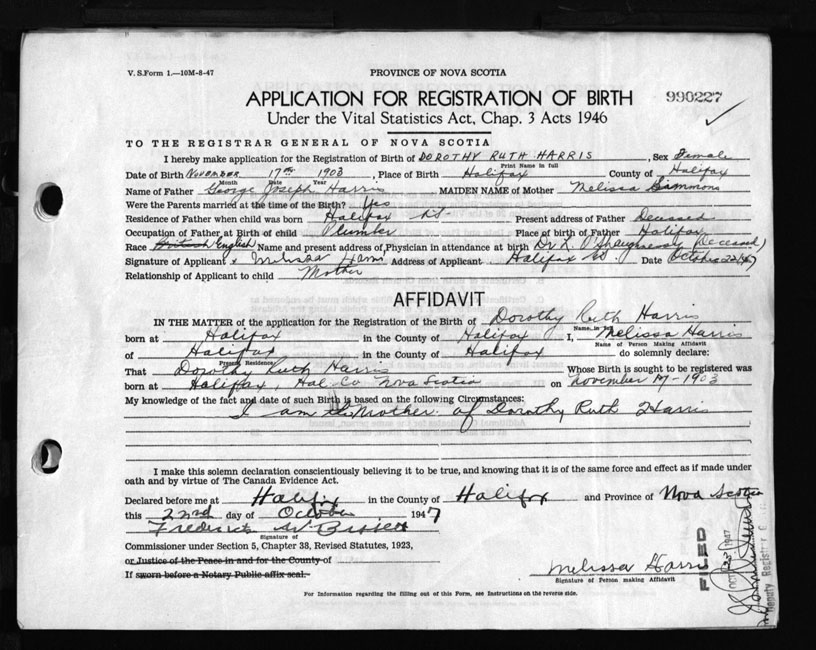 V. S. Form 1.—10M-8-47
PROVINCE OF NOVA SCOTIA
APPLICATION FOR REGISTRATION OF BIRTH
990227
Under the Vital Statistics Act, Chap. 3 Acts 1946
TO THE REGISTRAR GENERAL OF NOVA SCOTIA
I hereby make application for the Registration of Birth of DOROTHY RUTH HARRIS, Sex Female
Print Name in full
Date of Birth November 17th 1903, Place of Birth Halifax County of Halifax
Month Day Year
Name of Father George Joseph Harris MAIDEN NAME of Mother Melissa Simmons
Were the Parents married at the time of the Birth? Yes
Residence of Father when child was born Halifax NS Present address of Father Deceased
Occupation of Father at Birth of child Plumber Place of birth of Father Halifax
Race British English Name and present address of Physician in attendance at birth Dr L. O'Shaugnessy (Deceased)
Signature of Applicant x Melissa Harris Address of Applicant Halifax NS. Date October 22/47
Relationship of Applicant to child Mother
AFFIDAVIT
IN THE MATTER of the application for the Registration of the Birth of Dorothy Ruth Harris
Name in full
born at Halifax in the County of Halifax I, Melissa Harris
Name of Person Making Affidavit
of Halifax in the County of Halifax do solemnly declare:
Present Residence
That Dorothy Ruth Harris Whose Birth is sought to be registered was
born at Halifax, Hal. Co Nova Scotia on November 17-1903
My knowledge of the fact and date of such Birth is based on the following Circumstances:
I am the Mother of Dorothy Ruth Harris
I make this solemn declaration conscientiously believing it to be true, and knowing that it is of the same force and effect as if made under
oath and by virtue of The Canada Evidence Act.
Declared before me at Halifax in the County of Halifax and Province of Nova Scotia
this 22nd day of October 1947
Frederick W
Signature of
Commissioner under Section 5, Chapter 38, Revised Statutes, 1923,
or Justice of the Peace in and for the County of
If sworn before a Notary Public affix seal.
Melissa Harris
Signature of Person Making Affidavit
FILED
OCT 23 1947
Deputy Registrar
For Information regarding the filling out of this Form, see Instructions on the reverse side.